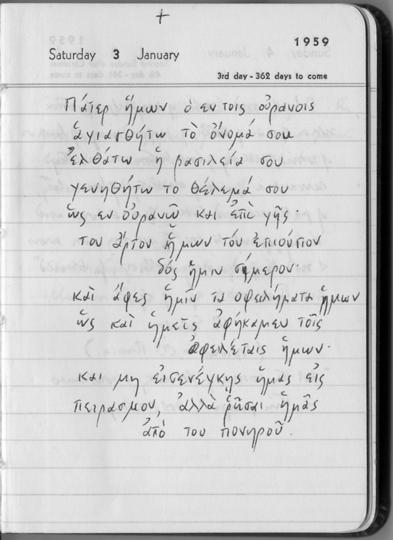 +
1959
Saturday 3 January
3rd day - 362 days to come
Πάτερ ἥμων ὁ εν τοις οὐρανοις
ἁγιασθήτω τὸ ὀνομά σου
Ἐλθάτω ἡ βασιλεία σου
γενηθήτω το θέλεμά σου
ὥς εν οὐρανῶ και ἐπὶ γῆς·
τον ἄρτον ἥμων τόν ἐπιούσιον
δός ἥμιν σήμερον·
και ἄφες ἥμῖν τα οφειλήματα ἥμων
ὥς καὶ ἥμεῖς ἀφήκαμεν τοῖς
ὀφειλέταις ἥμων·
και μη εἰσενέγκῃς ἥμας εἰς
πειρασμον, ἀλλὰ ῥῦσαι ἥμᾶς
ἀπὸ του πονηροῦ.